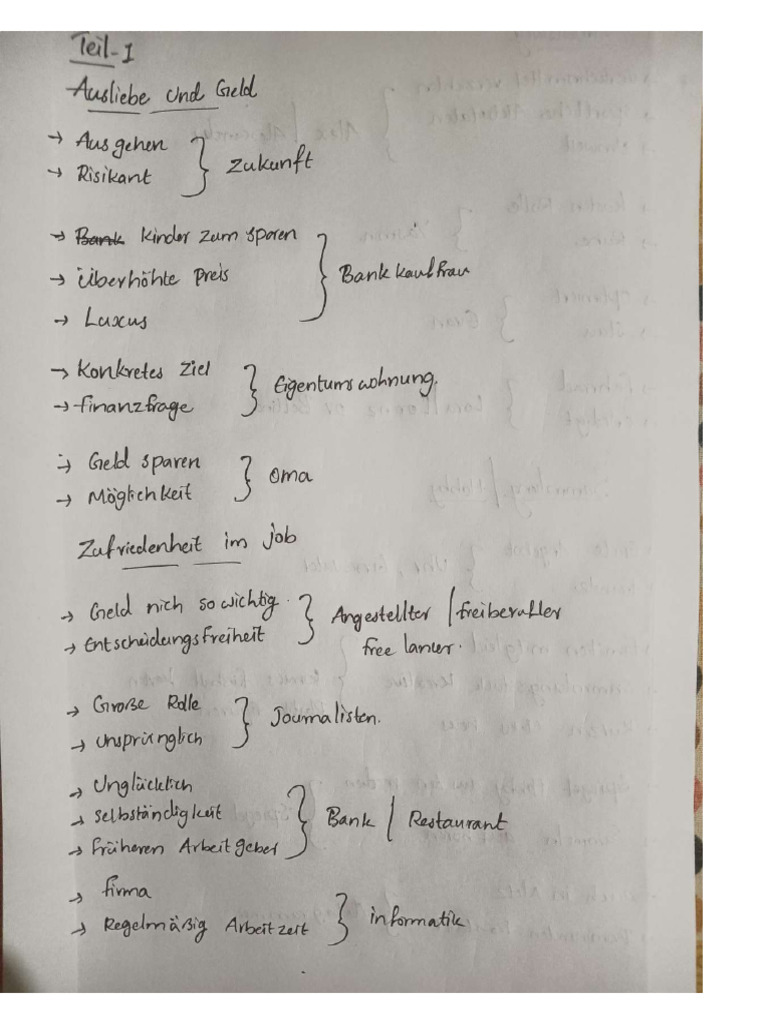 Teil-1
Ausliebe und Geld
→ Ausgehen
→ Risikant
} Zukunft
→ Bank kinder zum sparen
→ Überhöhte preis
→ Luxus
} Bankkauffrau
→ Konkretes Ziel
→ finanzfrage
} Eigentumswohnung.
→ Geld sparen
→ Möglichkeit
} oma
Zufriedenheit im Job
→ Geld nich so wichtig.
→ Entscheidungsfreiheit
} Angestellter / freiberufler
free lancer.
→ Große Rolle
→ unsprünglich
} Journalisten.
→ Unglücklich
→ selbständigkeit
→ früheren Arbeitgeber
} Bank / Restaurant
→ firma
→ Regelmäßig Arbeitzeit
} informatik